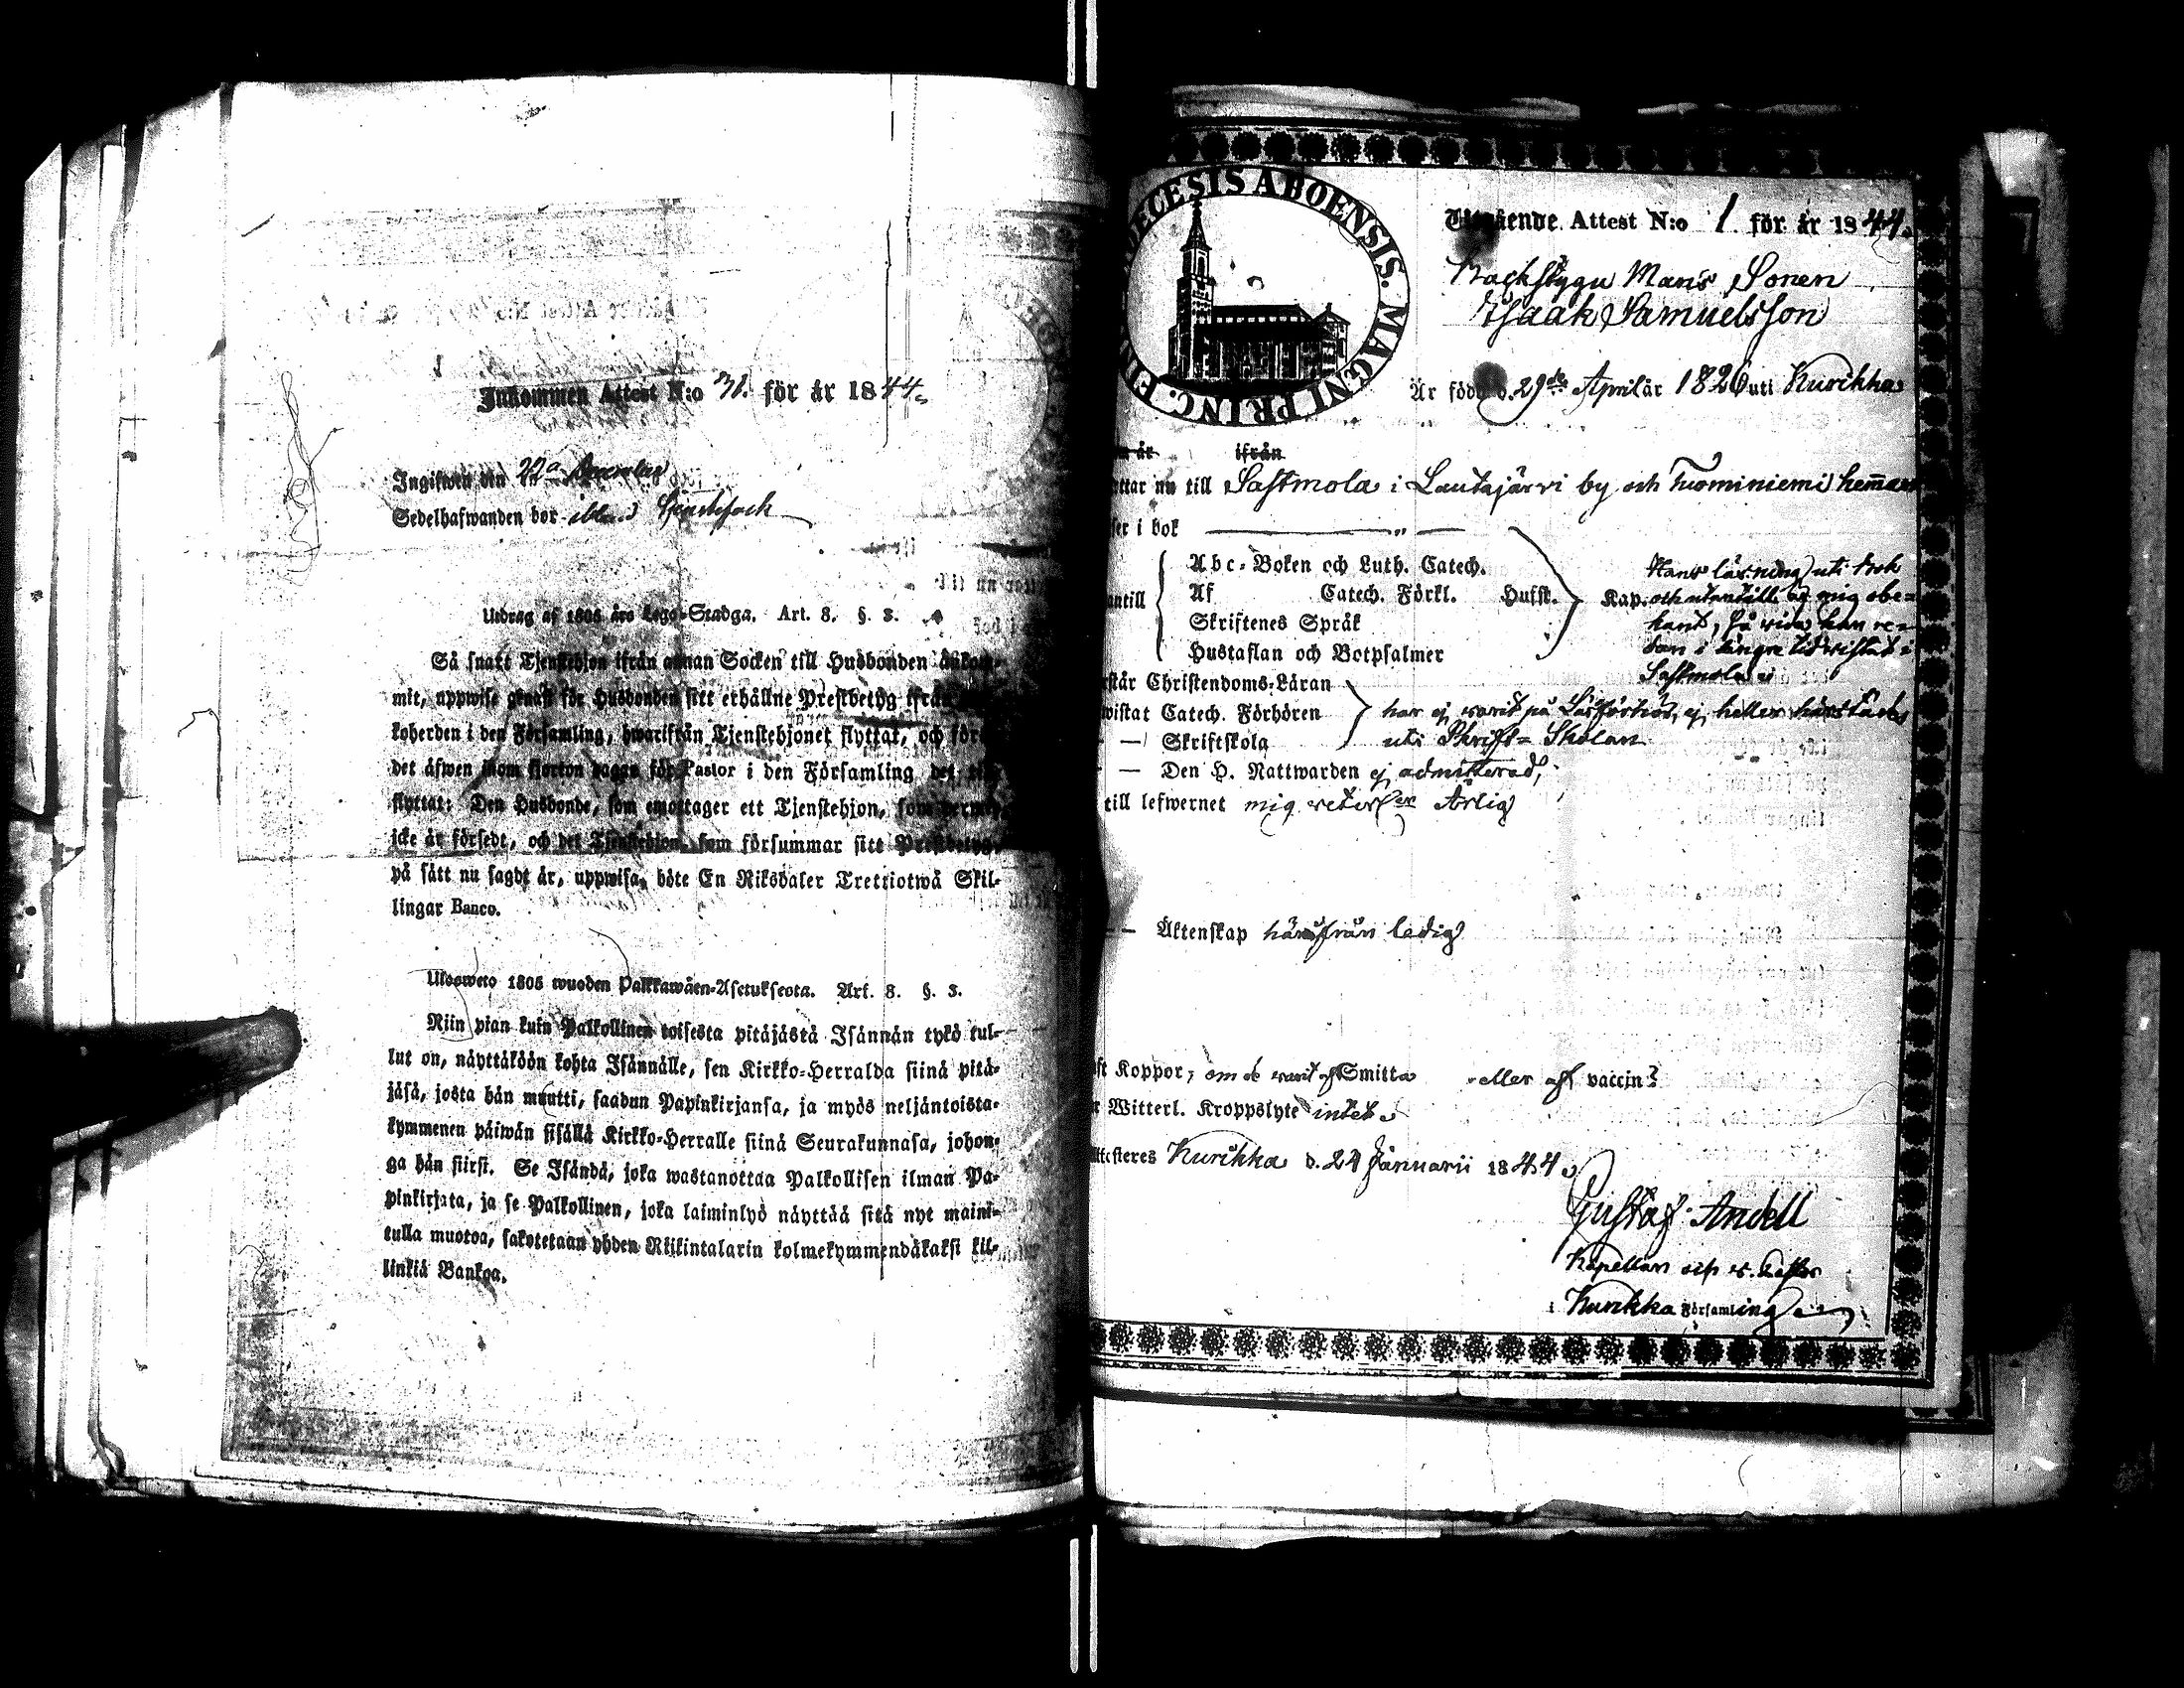 Inkommen Attest N:o 31. för år 1844.
Ingifwen den 22a
Sedelhafwanden bor
Utdrag af 1805 års Lego-Stadga. Art. 8. §. 3.
Så snart Tjenstehjon ifrån annan Socken till Husbonden ankom-
mit, uppwise genast för Husbonden sitt erhållne Prestbetyg ifrån
koherden i den Församling, hwarifrån Tjenstehjonet flyttat, och för
det äfwen inom fjorton dagar för Pastor i den Församling det
flyttat: Den Husbonde, som emottager ett Tjenstehjon, som
icke är försedt, och det Tjenstehjon, som försummar sitt Prestbetyg,
på sätt nu sagdt är, uppwisa, böte En Riksdaler Trettiotwå Skil-
lingar Banco.
Ulosweto 1805 wuoden Palkkawäen-Asetuksesta. Art. 8. §. 3.
Niin pian kuin Palkollinen toisesta pitäjästä Isännän tykö tul-
lut on, näyttäköön kohta Isännälle, sen Kirkko-Herralda siinä pitä-
jäsä, josta hän muutti, saadun Papinkirjansa, ja myös neljäntoista-
kymmenen päiwän sisällä Kirkko-Herralle siinä Seurakunnasa, johon-
ga hän siirsi. Se Isändä, joka wastanottaa Palkollisen ilman Pa-
pinkirjata, ja se Palkollinen, joka laiminlyö näyttää sitä nyt maini-
tulla muotoa, sakotetaan yhden Riikintalarin kolmekymmendäkaksi kil-
linkiä Bankoa.
DECESIS ABOENSIS. MAGNI PRINC. FIN
Utgående Attest N:o 1 för år 1844.
Backstugu Mans Sonen
Isaak Samuelsson
Är född d. 29de April år 1826 uti Kurikka
är ifrån
ttar nu till Sastmola i Lautajärvi by och Tuominiemi hemman
ser i bok "
Abc-Boken och Luth. Catech.
antill Af Catech. Förkl. Hufst. Kap.
Skriftenes Språk
Hustaflan och Botpsalmer
Hans läsning uti bok
och utantill är mig obe=
kant, så vida han re=
dan i längre tid vistats i
Sastmola
står Christendoms-Läran
wistat Catech. Förhören har ej varit på Läsförhör, ej heller härstädes
— Skriftskola uti Skrift-Skolan
— Den H. Nattwarden ej admitterad,
till lefwernet mig veterl:en Ärlig
— Äktenskap härifrån ledig
ft Koppor, om de varit af Smitta eller af vaccin?
r Witterl. Kroppslyte intet
Attesteres Kurikka d. 24 Januarii 1844
Gustaf Andell
Kapellan och v. Pastor
i Kurikka Församling